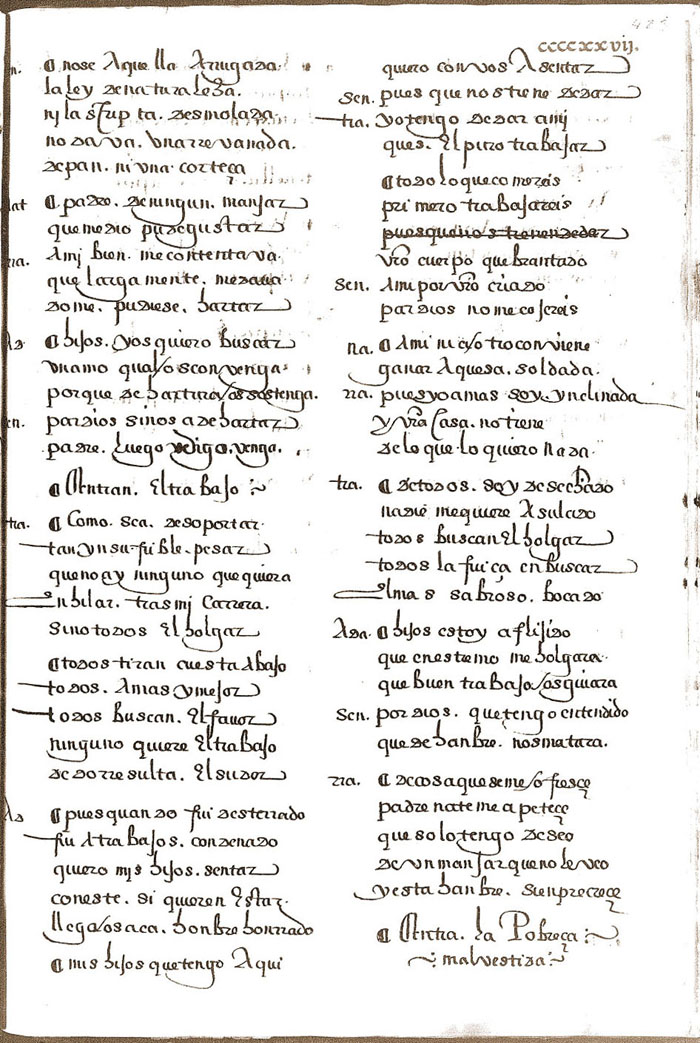 425
ccccxxvij.
n. ¶ nose Aquella Arrugada
la ley de naturaleza.
ni la scrip ta. desmolada
no da va. vna rrevanada.
de pan. ni vna. corteça
at ¶ padre. de ningun. manjar
que me dio pude gustar
ra. Ami bien. me contentava
que larga mente. me dava
do me. pudiese. hartar
Ad ¶ hijos. yos quiero buscar
vn amo qual os convenga
porque de hartura os sostenga.
en. par dios si nos a de hartar
padre. luego venga.
¶ Entran. El traBajo
tra. ¶ Como. sea. de soportar
tan ynsufrible. pesar
que no ay ninguno que quiera
enhilar. tras mi Carrera.
sino todos El holgar
¶ todos tiran cuesta abajo
todos. Amas y mejor
todos buscan. El favor
ninguno quiere El traBajo
de do rresulta. El sudor
Ad ¶ pues quando fui desterrado
fui a traBajos. condenado
quiero mis hijos. sentar
con este. si quieren Estar.
llegaos aca. honbre honrrado
¶ mis hijos que tengo Aqui
quiero con vos Asentar
Sen. pues que nos tiene de dar
tra. yo tengo de dar a mi
ques. El puro trabajar
¶ todo lo que comereis
primero trabajareis
pues que nos tienen de dar
vro cuerpo quebrantado
Sen. Ami por vro criado
par dios no me cojereis
na. ¶ Ami ni a otro conviene
ganar Aquesa. soldada.
rra. pues yo amas soy. ynclinada
y vra Casa. no tiene
de lo que lo quiero nada
tra. ¶ de todos. soy desechado
nadie me quiere A su lado
todos buscan El holgar
todos la fuiça en buscar
El mas sabroso. bocado
Ada. ¶ hijos estoy aflijido
que en estremo me holgara
que buen trabajo os guiara
Sen. por dios. que tengo entendido
que de hanbre. nos matara.
rra. ¶ de cosa que se me ofresçe
padre na te me apeteçe
que solo tengo deseo
de vn manjar que no le veo
y esta hanbre. sienpre creçe
¶ Entra. la Pobreça
mal vestida